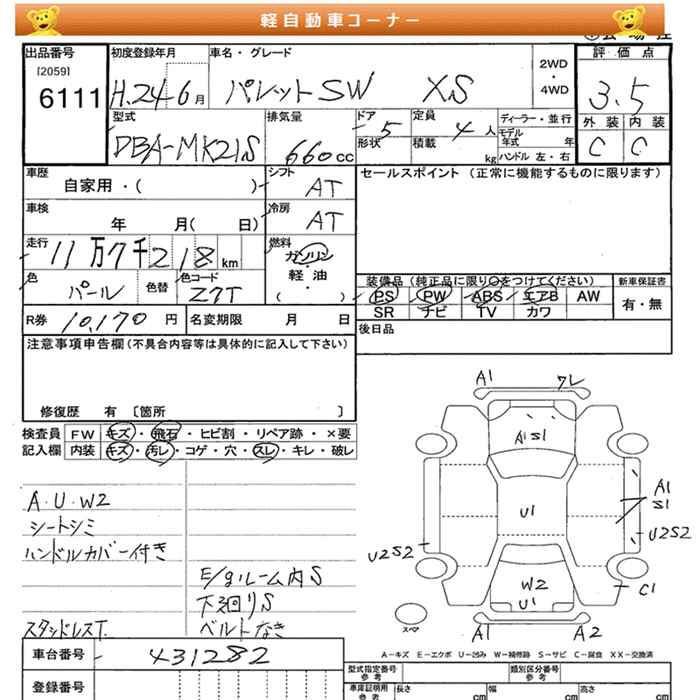 軽自動車コーナー
出品番号 初度登録年月 車名・グレード 評価点
[2059]
6111 H.24 6月 パレットSW XS 2WD・4WD 3.5
型式 排気量 ドア 定員 ディーラー・並行 外装 内装
DBA-MK21S 660cc 5 4人 モデル年式 年 C C
形状 積載 kg ハンドル 左・右
車歴 シフト セールスポイント (正常に機能するものに限ります)
自家用・( ) AT
車検 冷房
年 月( 日) AT
走行 燃料
11万7千218km ガソリン
軽・油
( ・ )
色 色替 色コード 装備品 (純正品に限り○をつけてください) 新車保証書
パール Z7T PS PW ABS エアB AW 有・無
SR ナビ TV カワ
R券 10,170円 名変期限 月 日 後日品
注意事項申告欄(不具合内容等は具体的に記入して下さい)
修復歴 有 〔箇所 〕
検査員 FW キズ・飛石・ヒビ割・リペア跡・×要
記入欄 内装 キズ・汚レ・コゲ・穴・スレ・キレ・破レ
A1 ワレ
A1S1
A・U・W2 A1
シートシミ S1
ハンドルカバー付き U1
U2S2 U2S2
E/gルーム内S W2 C1
下廻りS U1
スタッドレスT. ベルトなき スペア A1 A2
A-キズ E-エクボ U-凹み W-補修跡 S-サビ C-腐食 XX-交換済
車台番号 431282 型式指定番号 類別区分番号
参考 参考
登録番号 車庫証明用 長さ 幅 高さ
参考 cm cm cm